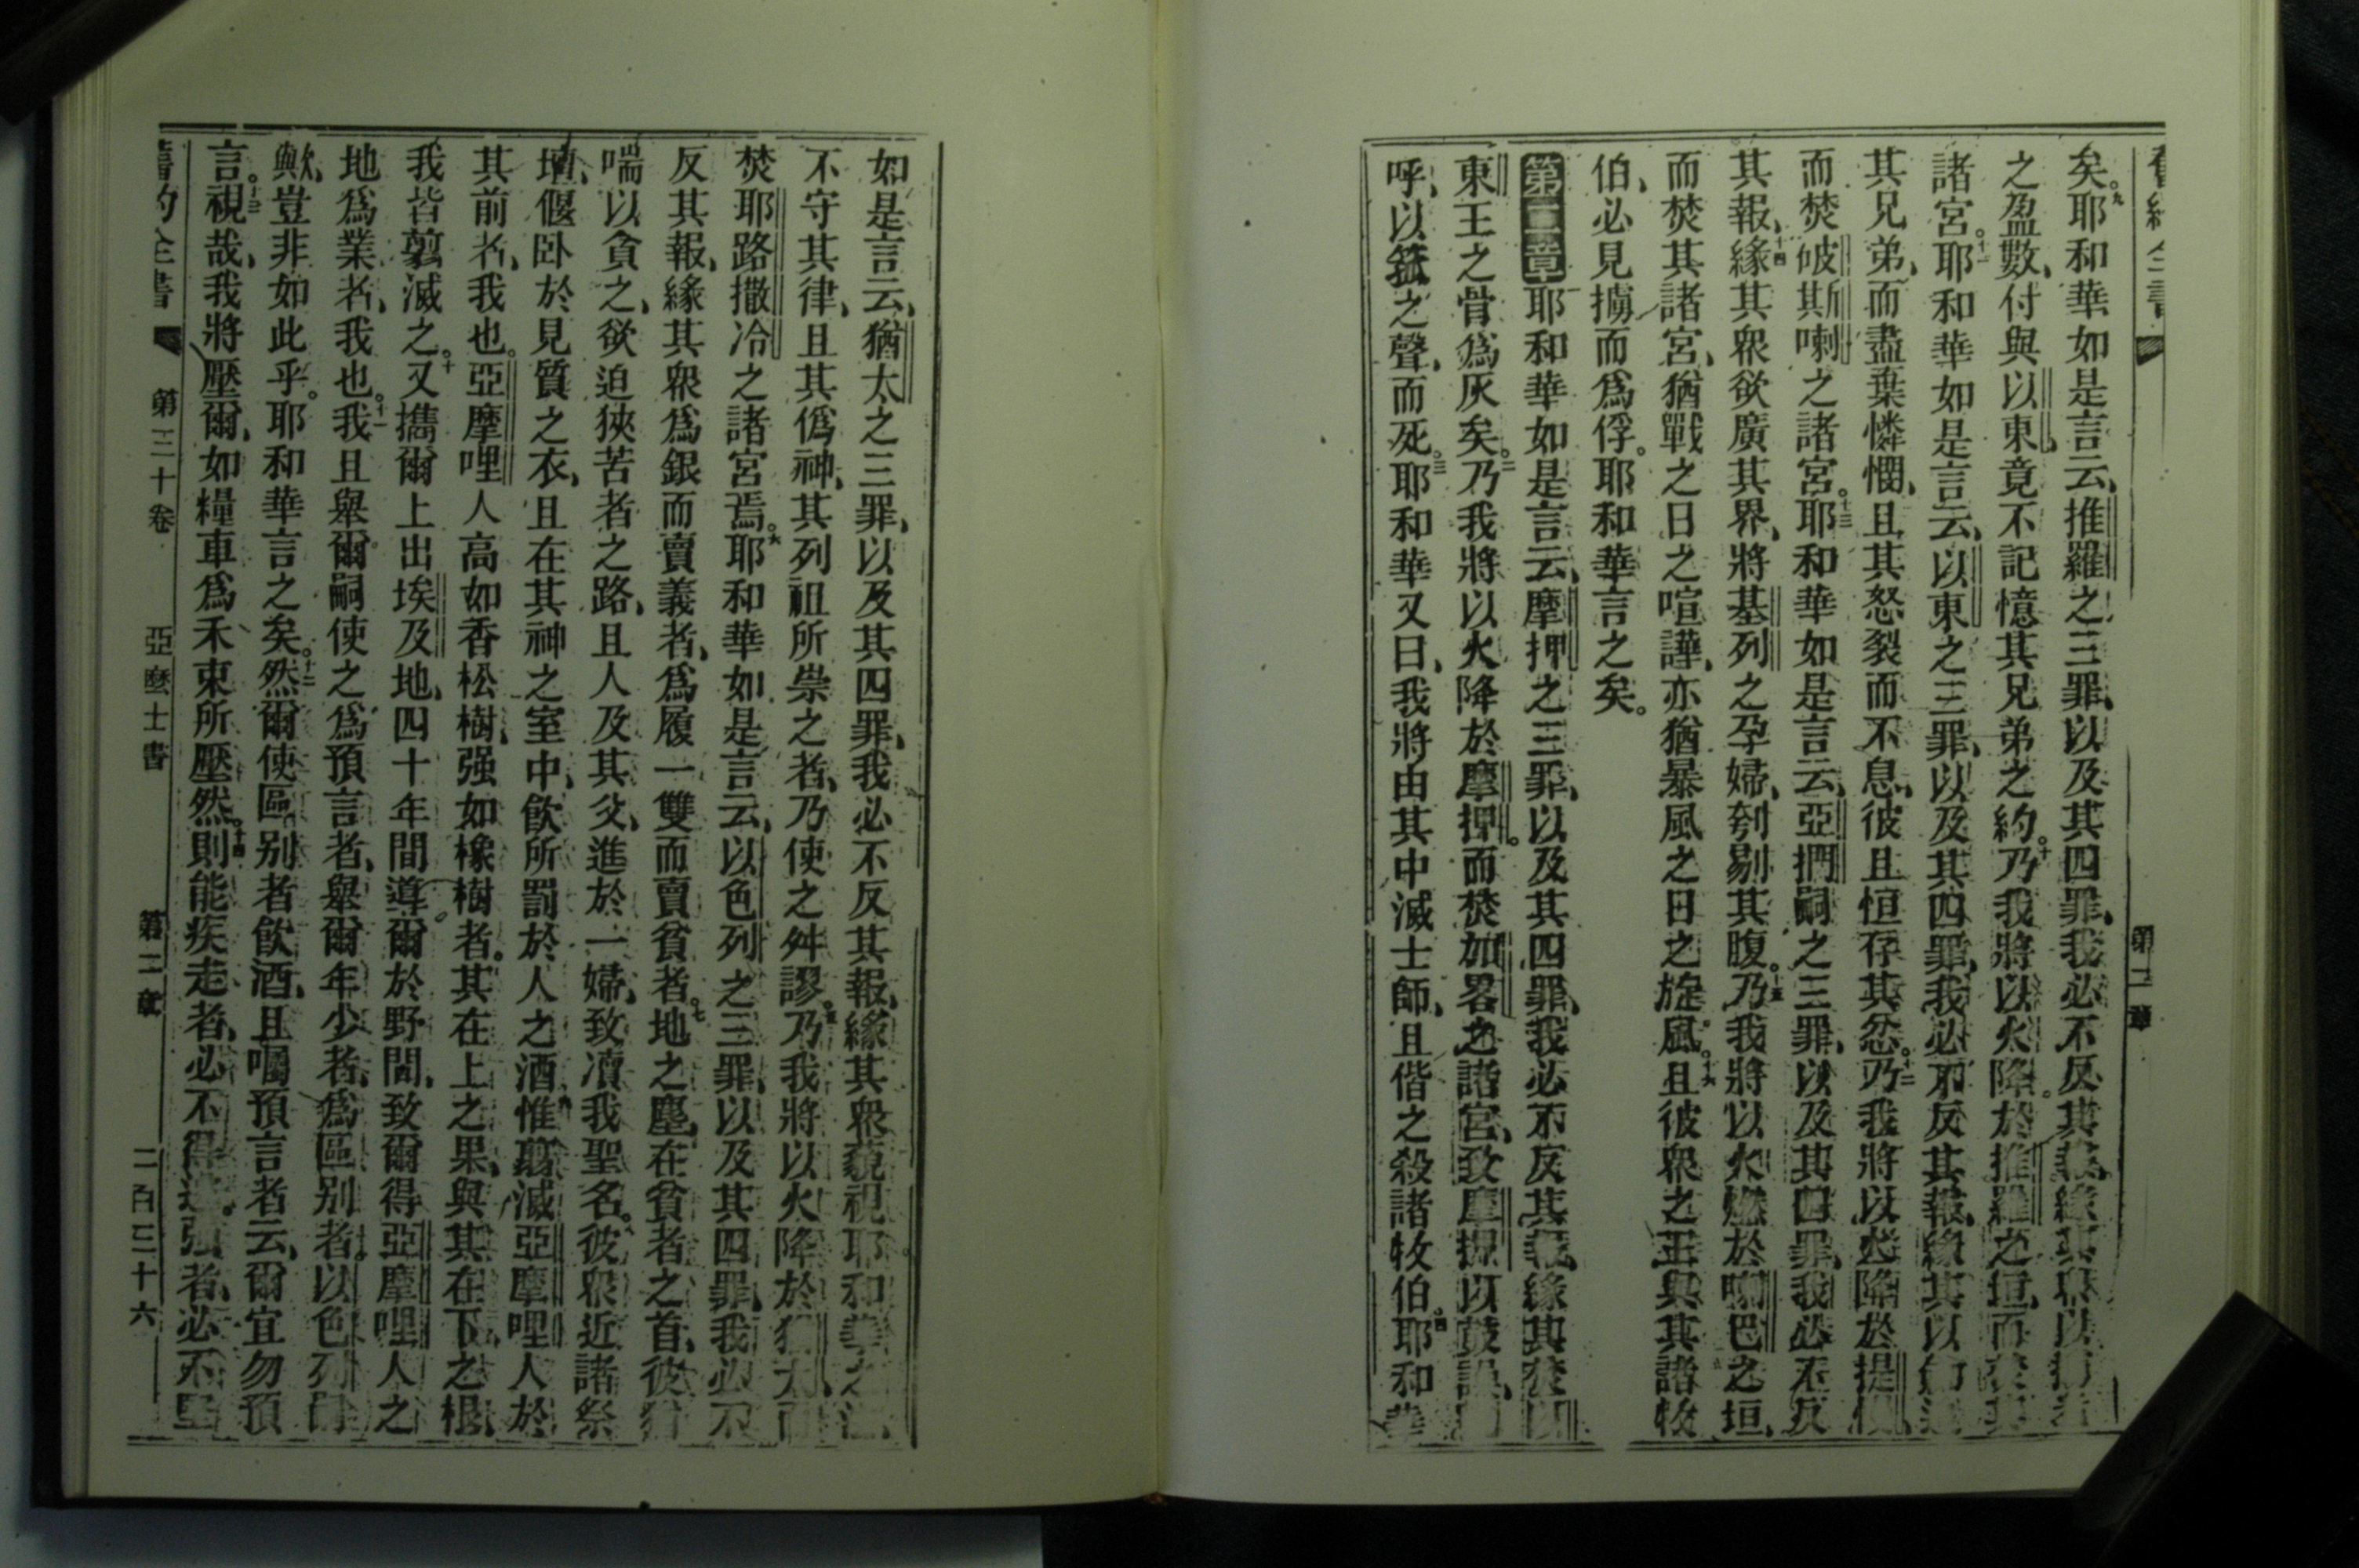 舊約全書 第二章
矣。九耶和華如是言云、推羅之三罪、以及其四罪、我必不反其報、緣其眾以
之盈數、付與以東、竟不記憶其兄弟之約。十乃我將以火降於推羅之垣、而焚其
諸宮。十一耶和華如是言云、以東之三罪、以及其四罪、我必不反其報、緣其以劍追
其兄弟、而盡棄憐憫、且其怒裂而不息、彼且恒存其忿。十二乃我將以火降於提慢、
而焚㖠斯喇之諸宮。十三耶和華如是言云、亞捫嗣之三罪、以及其四罪、我必不反
其報、十四緣其眾欲廣其界、將基列之孕婦、刳剔其腹。十五乃我將以火燃於喇巴之垣、
而焚其諸宮、猶戰之日之喧譁、亦猶暴風之日之旋風。十六且彼眾之王與其諸牧
伯、必見擄而為俘。耶和華言之矣。
第二章 耶和華如是言云、摩押之三罪、以及其四罪、我必不反其報、緣其焚以
東王之骨為灰矣。二乃我將以火降於摩押。而焚如畧之諸宮、致摩押以鼓譟、
呼、以箛之聲、而死。三耶和華又曰、我將由其中滅士師、且偕之殺諸牧伯。四耶和華
如是言云、猶太之三罪、以及其四罪、我必不反其報、緣其眾藐視耶和華之
不守其律、且其偽神、其列祖所崇之者、乃使之舛謬。五乃我將以火降於猶太、而
焚耶路撒冷之諸宮焉。六耶和華如是言云、以色列之三罪、以及其四罪、我必不
反其報、緣其眾為銀而賣義者、為履一雙而賣貧者。七地之塵、在貧者之首、彼猶
喘以貪之、欲迫狹苦者之路、且人及其父、進於一婦、致凟我聖名。八彼眾近諸祭
壇、偃卧於見質之衣、且在其神之室中、飲所罰於人之酒。九惟翦滅亞摩哩人於
其前者、我也。亞摩哩人高如香松樹、强如橡樹者。其在上之果、與其在下之根、
我皆翦滅之。十又攜爾上出埃及地、四十年間導爾於野間、致爾得亞摩哩人之
地為業者、我也。十一我且舉爾嗣使之為預言者、舉爾年少者、為區别者。以色列嗣
歟、豈非如此乎。耶和華言之矣。十二然爾使區别者飲酒、且囑預言者云、爾宜勿預
言。十三視哉、我將壓爾、如糧車為禾束所壓然。十四則能疾走者、必不得逃、强者、必不堅
舊約全書 第三十卷 亞麼士書 第二章 二百三十六